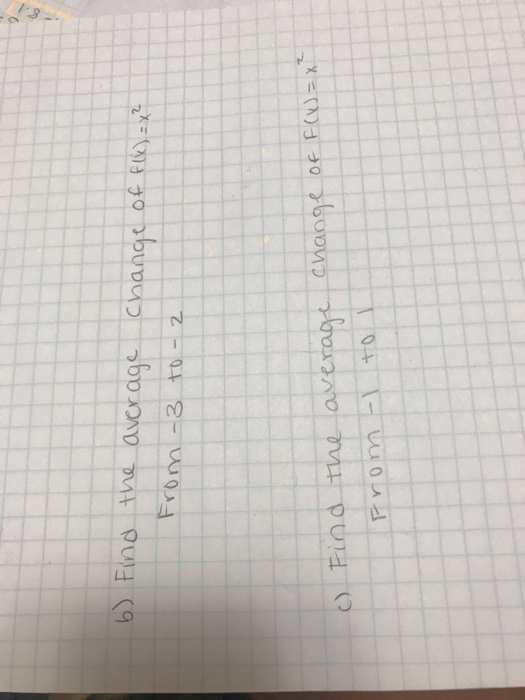 b) Find the average change of f(x)=x²
From -3 to -2
c) Find the average change of F(x)=x²
From -1 to 1